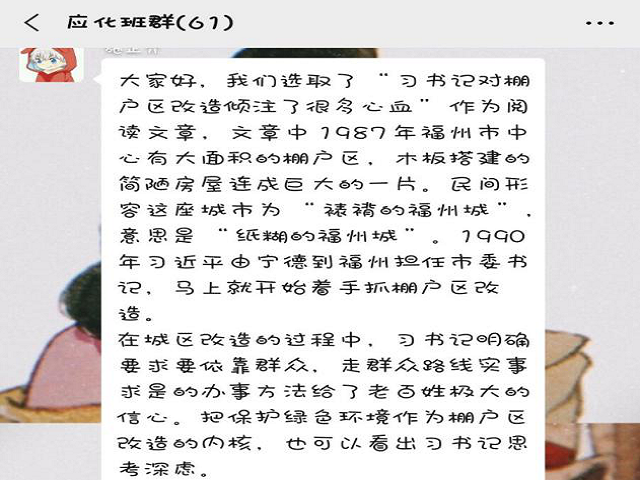 应化班群(61)
大家好，我们选取了“习书记对棚
户区改造倾注了很多心血”作为阅
读文章，文章中1987年福州市中
心有大面积的棚户区，木板搭建的
简陋房屋连成巨大的一片。民间形
容这座城市为“裱褙的福州城”，
意思是“纸糊的福州城”。1990
年习近平由宁德到福州担任市委书
记，马上就开始着手抓棚户区改
造。
在城区改造的过程中，习书记明确
要求要依靠群众，走群众路线实事
求是的办事方法给了老百姓极大的
信心。把保护绿色环境作为棚户区
改造的内核，也可以看出习书记思
考深虑。